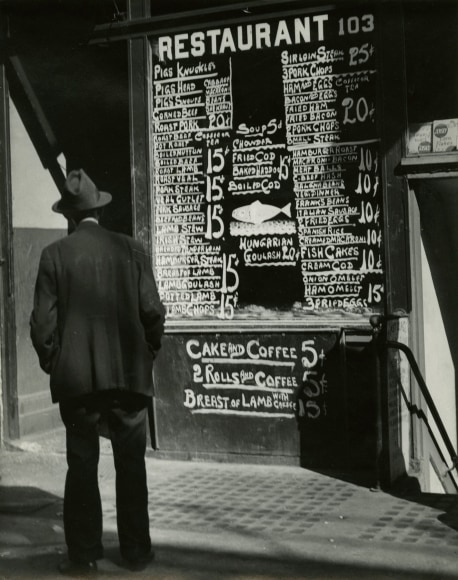 RESTAURANT 103
PIGS KNUCKLE
PIGS HEAD
PIGS SNOUTS
CORNED BEEF
ROAST PORK
20¢
ROAST BEEF
POT ROAST
ROAST VEAL
PORK STEAK
VEAL CUTLET
PORK SAUSAGE
LAMB STEW
IRISH STEW
HAMBURG STEAK
BREAST OF LAMB
LAMB GOULASH
POTTED LAMB
LAMB CHOPS
15¢
15¢
15¢
15¢
15¢
SOUP 5¢
CHOWDER
FRIED COD
BAKED HADDO
BOILED COD
15¢
HUNGARIAN
GOULASH 20¢
SIRLOIN STEAK 25¢
3 PORK CHOPS
HAM AND EGGS
BACON AND EGGS
FRIED HAM
FRIED BACON
2 PORK CHOPS
SMALL STEAK
20¢
HAMBURG & R
MEAT BALLS
VEG. DINNER
FRANKS BEANS
ITALIAN SAUSAGE
2 FRIED EGGS
SPANISH RICE
CREAMED MACARONI
FISH CAKES
CREAM COD
10¢
10¢
10¢
10¢
10¢
ONION OMELET
HAM OMELET
3 FRIED EGGS
15¢
CAKE AND COFFEE 5¢
2 ROLLS AND COFFEE 5¢
BREAST OF LAMB WITH COFFEE 15¢